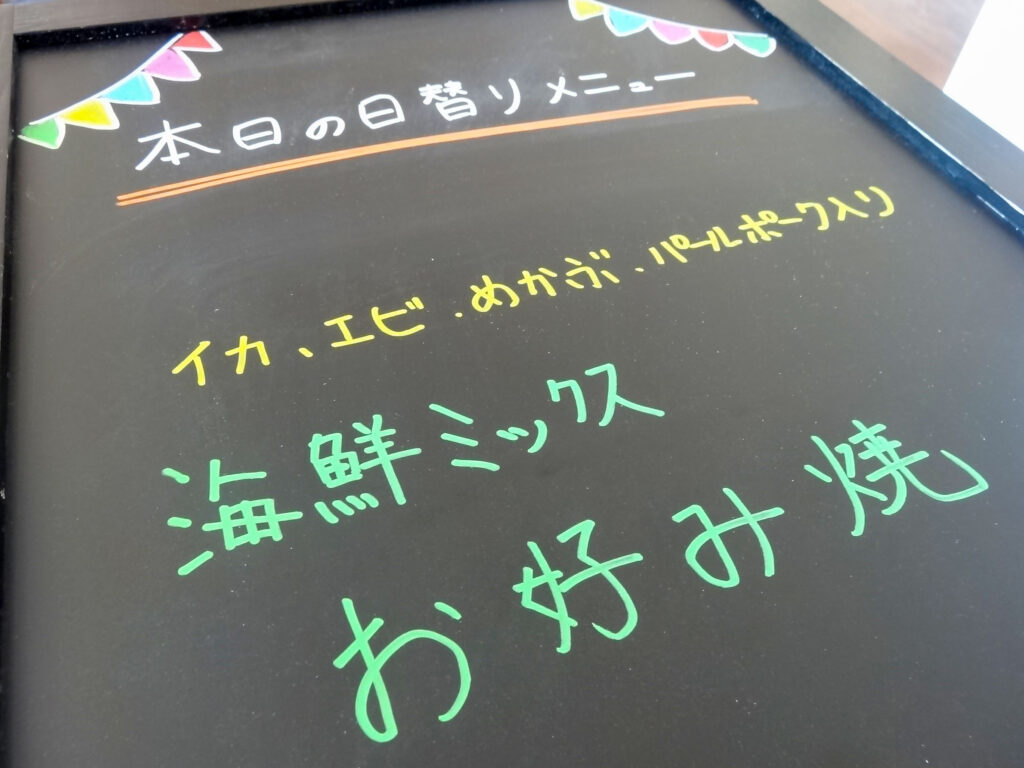 本日の日替りメニュー
イカ、エビ、めかぶ、パールポーク入り
海鮮ミックス
お好み焼